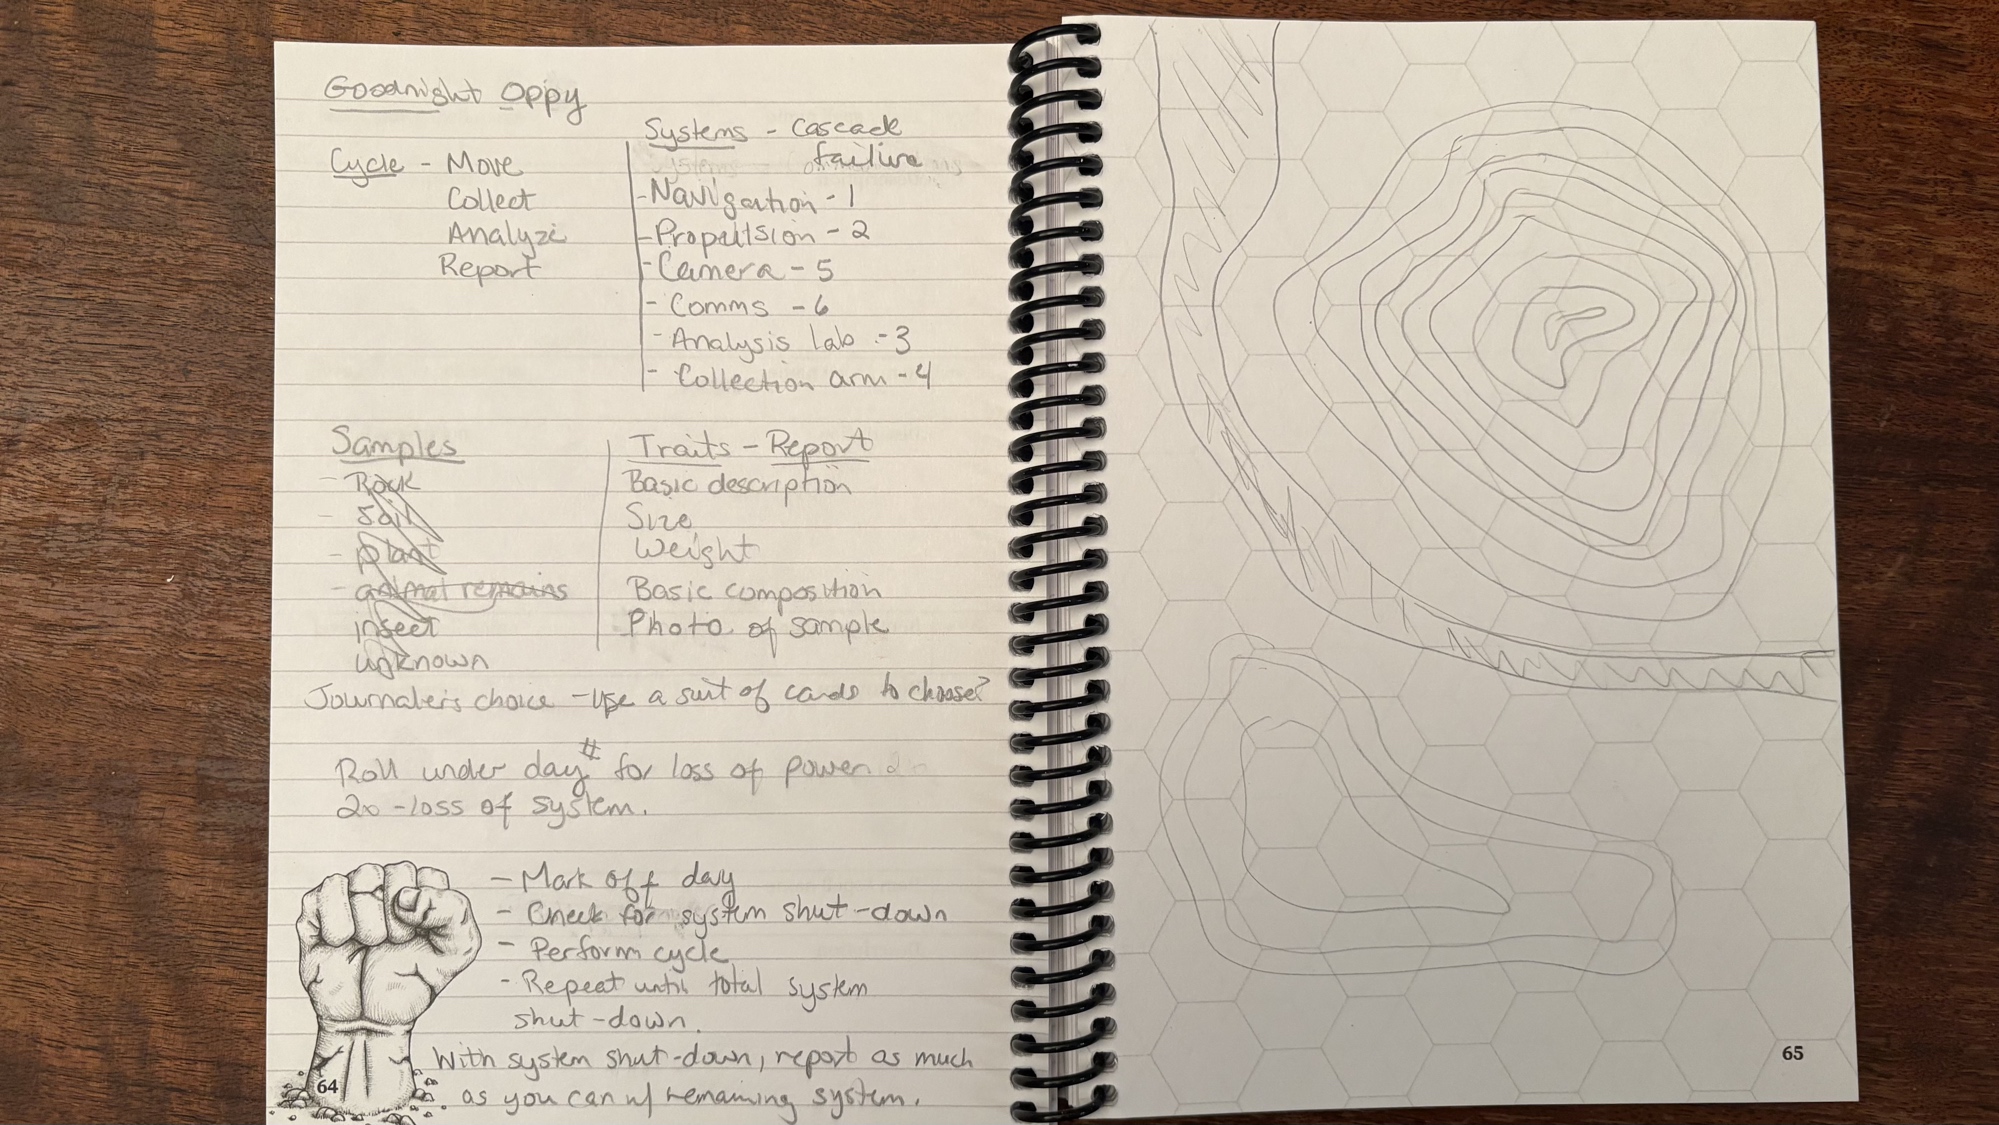 Goodnight Oppy
Systems - Cascade
failure
Cycle - Move
Collect
Analyze
Report
- Navigation - 1
- Propulsion - 2
- Camera - 5
- Comms - 6
- Analysis lab - 3
- Collection arm - 4
Samples
- Rock
- Soil
- plant
- animal remains
insect
unknown
Traits - Report
Basic description
Size
Weight
Basic composition
Photo of sample
Journaler's choice - use a suit of cards to choose?
Roll under day # for loss of power
2x - loss of system.
- Mark off day
- Check for system shut-down
- Perform cycle
- Repeat until total system
shut-down.
With system shut-down, report as much
as you can w/ remaining system.
64
65